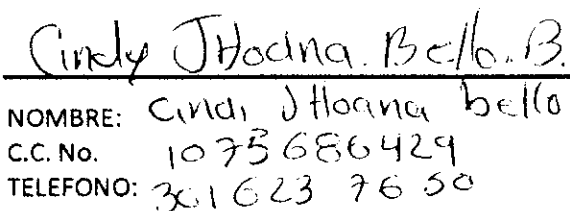 Cindy JHoana. Bello. B.
NOMBRE: Cindi JHoana bello
C.C. No. 1075686429
TELEFONO: 301 623 7650